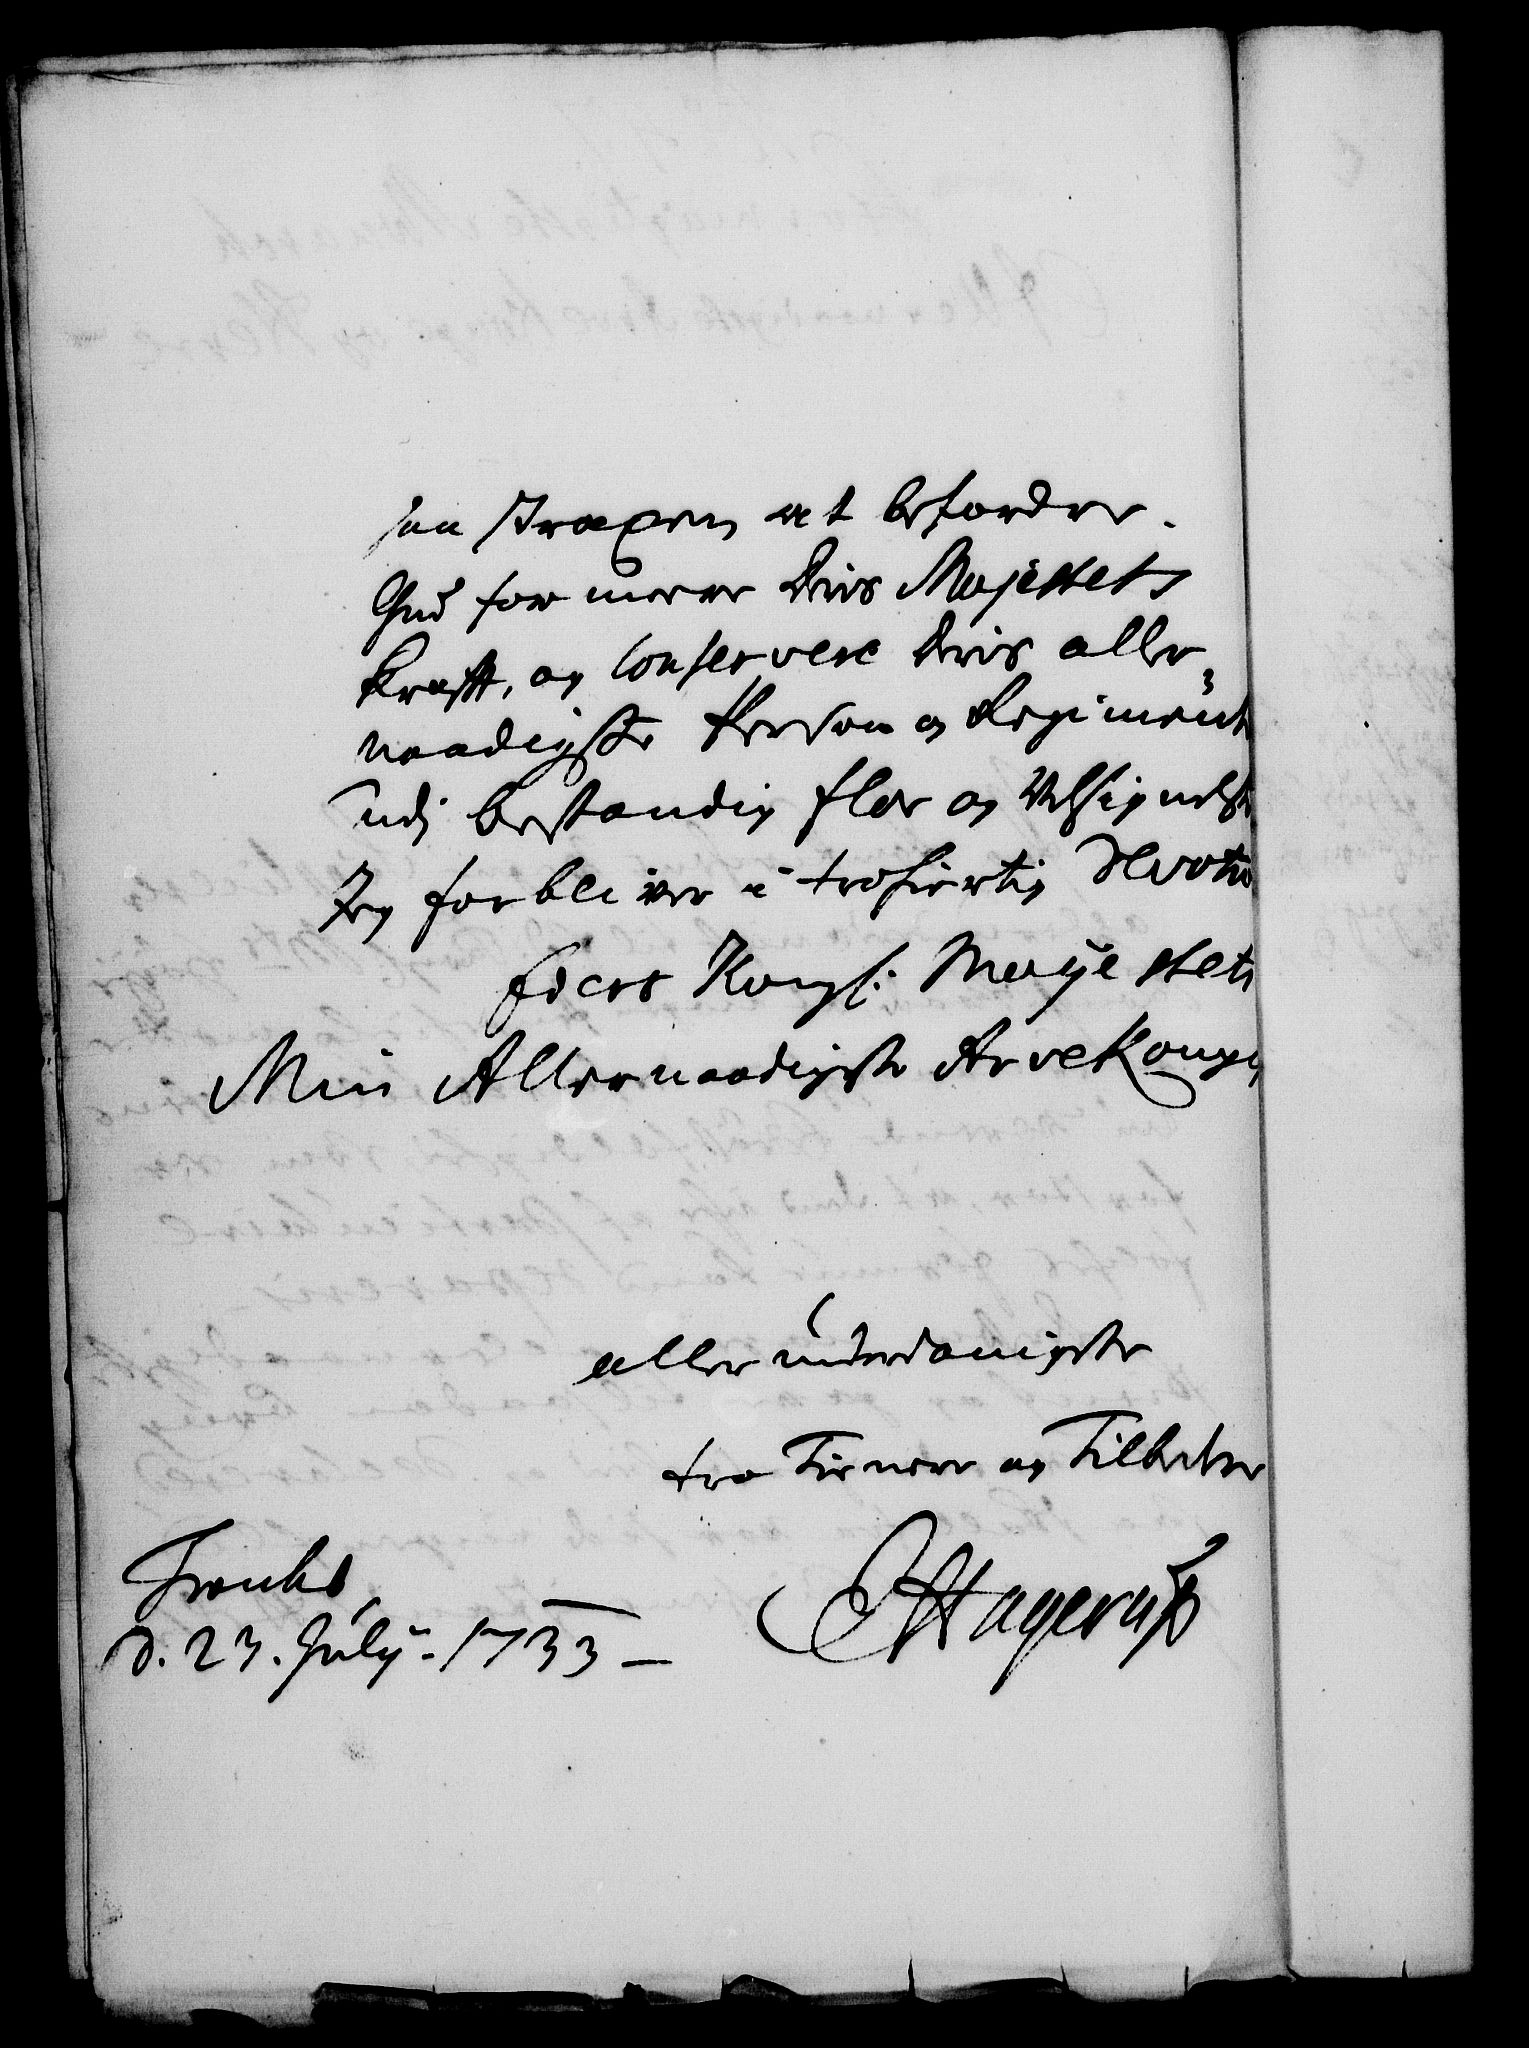 saa at befordre.
Gud formeere Deris Majestets
Krafft, og Conservere Deris aller-
naadigste Person og Regiment
udj bestandig flor og Velsignelse
Jeg forbliver i troskyldig Devotion
Eders Kongl: Majestets
Min Allernaadigste Arve Konges
allerunderdanigste
tro Tienere og Tilbeder
Tronhs
d. 23. July. 1733 _
EHagerup